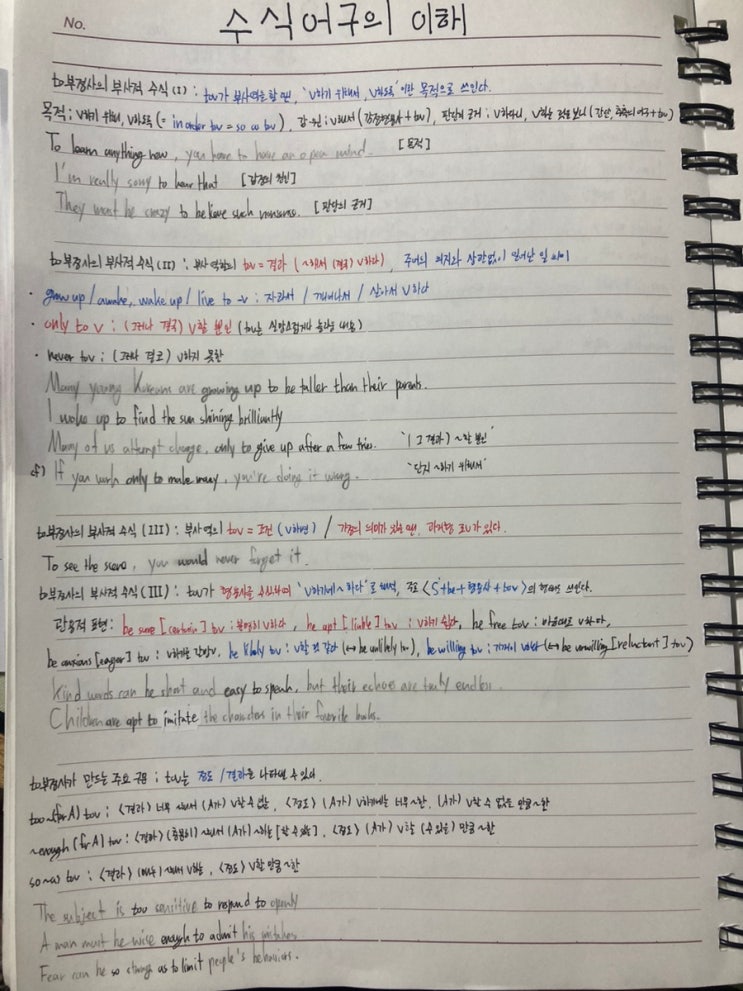 No.
수식어구의 이해
to부정사의 부사적 수식 (I) : tov가 부사역할을 할 땐, 'v하기 위해서, v하도록' 이란 목적으로 쓰인다.
목적 ; v하기 위해, v하도록 (= in order tov = so as tov), 감·원 ; v해서 (감정형용사 + tov), 판단의 근거 ; v하다니, v하는 것을 보니 (감탄, 추측의 어구 + tov)
To learn anything new, you have to have an open mind. [목적]
I'm really sorry to hear that [감정의 원인]
They must be crazy to believe such nonsense. [판단의 근거]
to부정사의 부사적 수식 (II) : 부사 역할의 tov = 결과 (~해서 (결국) v하다), 주어의 의지와 상관없이 일어난 일
· grow up / awake, wake up / live to -v : 자라서 / 깨어나서 / 살아서 v하다
· only to v : (그러나 결국) v할 뿐인 (tov는 실망스럽거나 놀라는 내용)
· never tov ; (그러나 결코) v하지 못한
Many young Koreans are growing up to be taller than their parents.
I woke up to find the sun shining brilliantly
Many of us attempt change, only to give up after a few tries. '( 그 결과 ) ~할 뿐인'
cf) If you work only to make money, you're doing it wrong. '단지 ~하기 위해서'
to부정사의 부사적 수식 (III) : 부사역의 tov = 조건 (v하면) / 가정의 의미가 있을 땐, 과거형 조v가 있다.
To see the scene, you would never forget it.
to부정사의 부사적 수식 (III) : tov가 형용사를 수식하여 'v하기에 ~하다'로 해석, 주로 <S + be + 형용사 + tov>의 형태로 쓰인다.
관용적 표현 : be sure [certain] tov : 분명히 v하다, be apt [liable] tov : v하기 쉽다, be free tov : 마음대로 v하다,
be anxious [eager] tov : v하기를 갈망, be likely tov : v할 것 같다 (↔ be unlikely to), be willing tov ; 기꺼이 v하다 (↔ be unwilling [reluctant] tov)
Kind words can be short and easy to speak, but their echoes are truly endless.
Children are apt to imitate the characters in their favorite books.
to부정사가 만드는 주요 구문 ; tov는 정도 / 결과를 나타낼 수 있다.
too~(for A) tov : <결과> 너무 ~해서 (A가) v할 수 없는, <정도> (A가) v하기에는 너무 ~한, (A가) v할 수 없을 만큼 ~한
~enough (for A) tov : <결과> (충분히) ~해서 (A가) ~하는 [할 수 있는], <정도> (A가) v할 (수 있을) 만큼 ~한
so ~as tov : <결과> (매우) ~해서 v하는, <정도> v할 만큼 ~한
The subject is too sensitive to respond to openly
A man must be wise enough to admit his mistakes
Fear can be so strong as to limit people's behaviors.